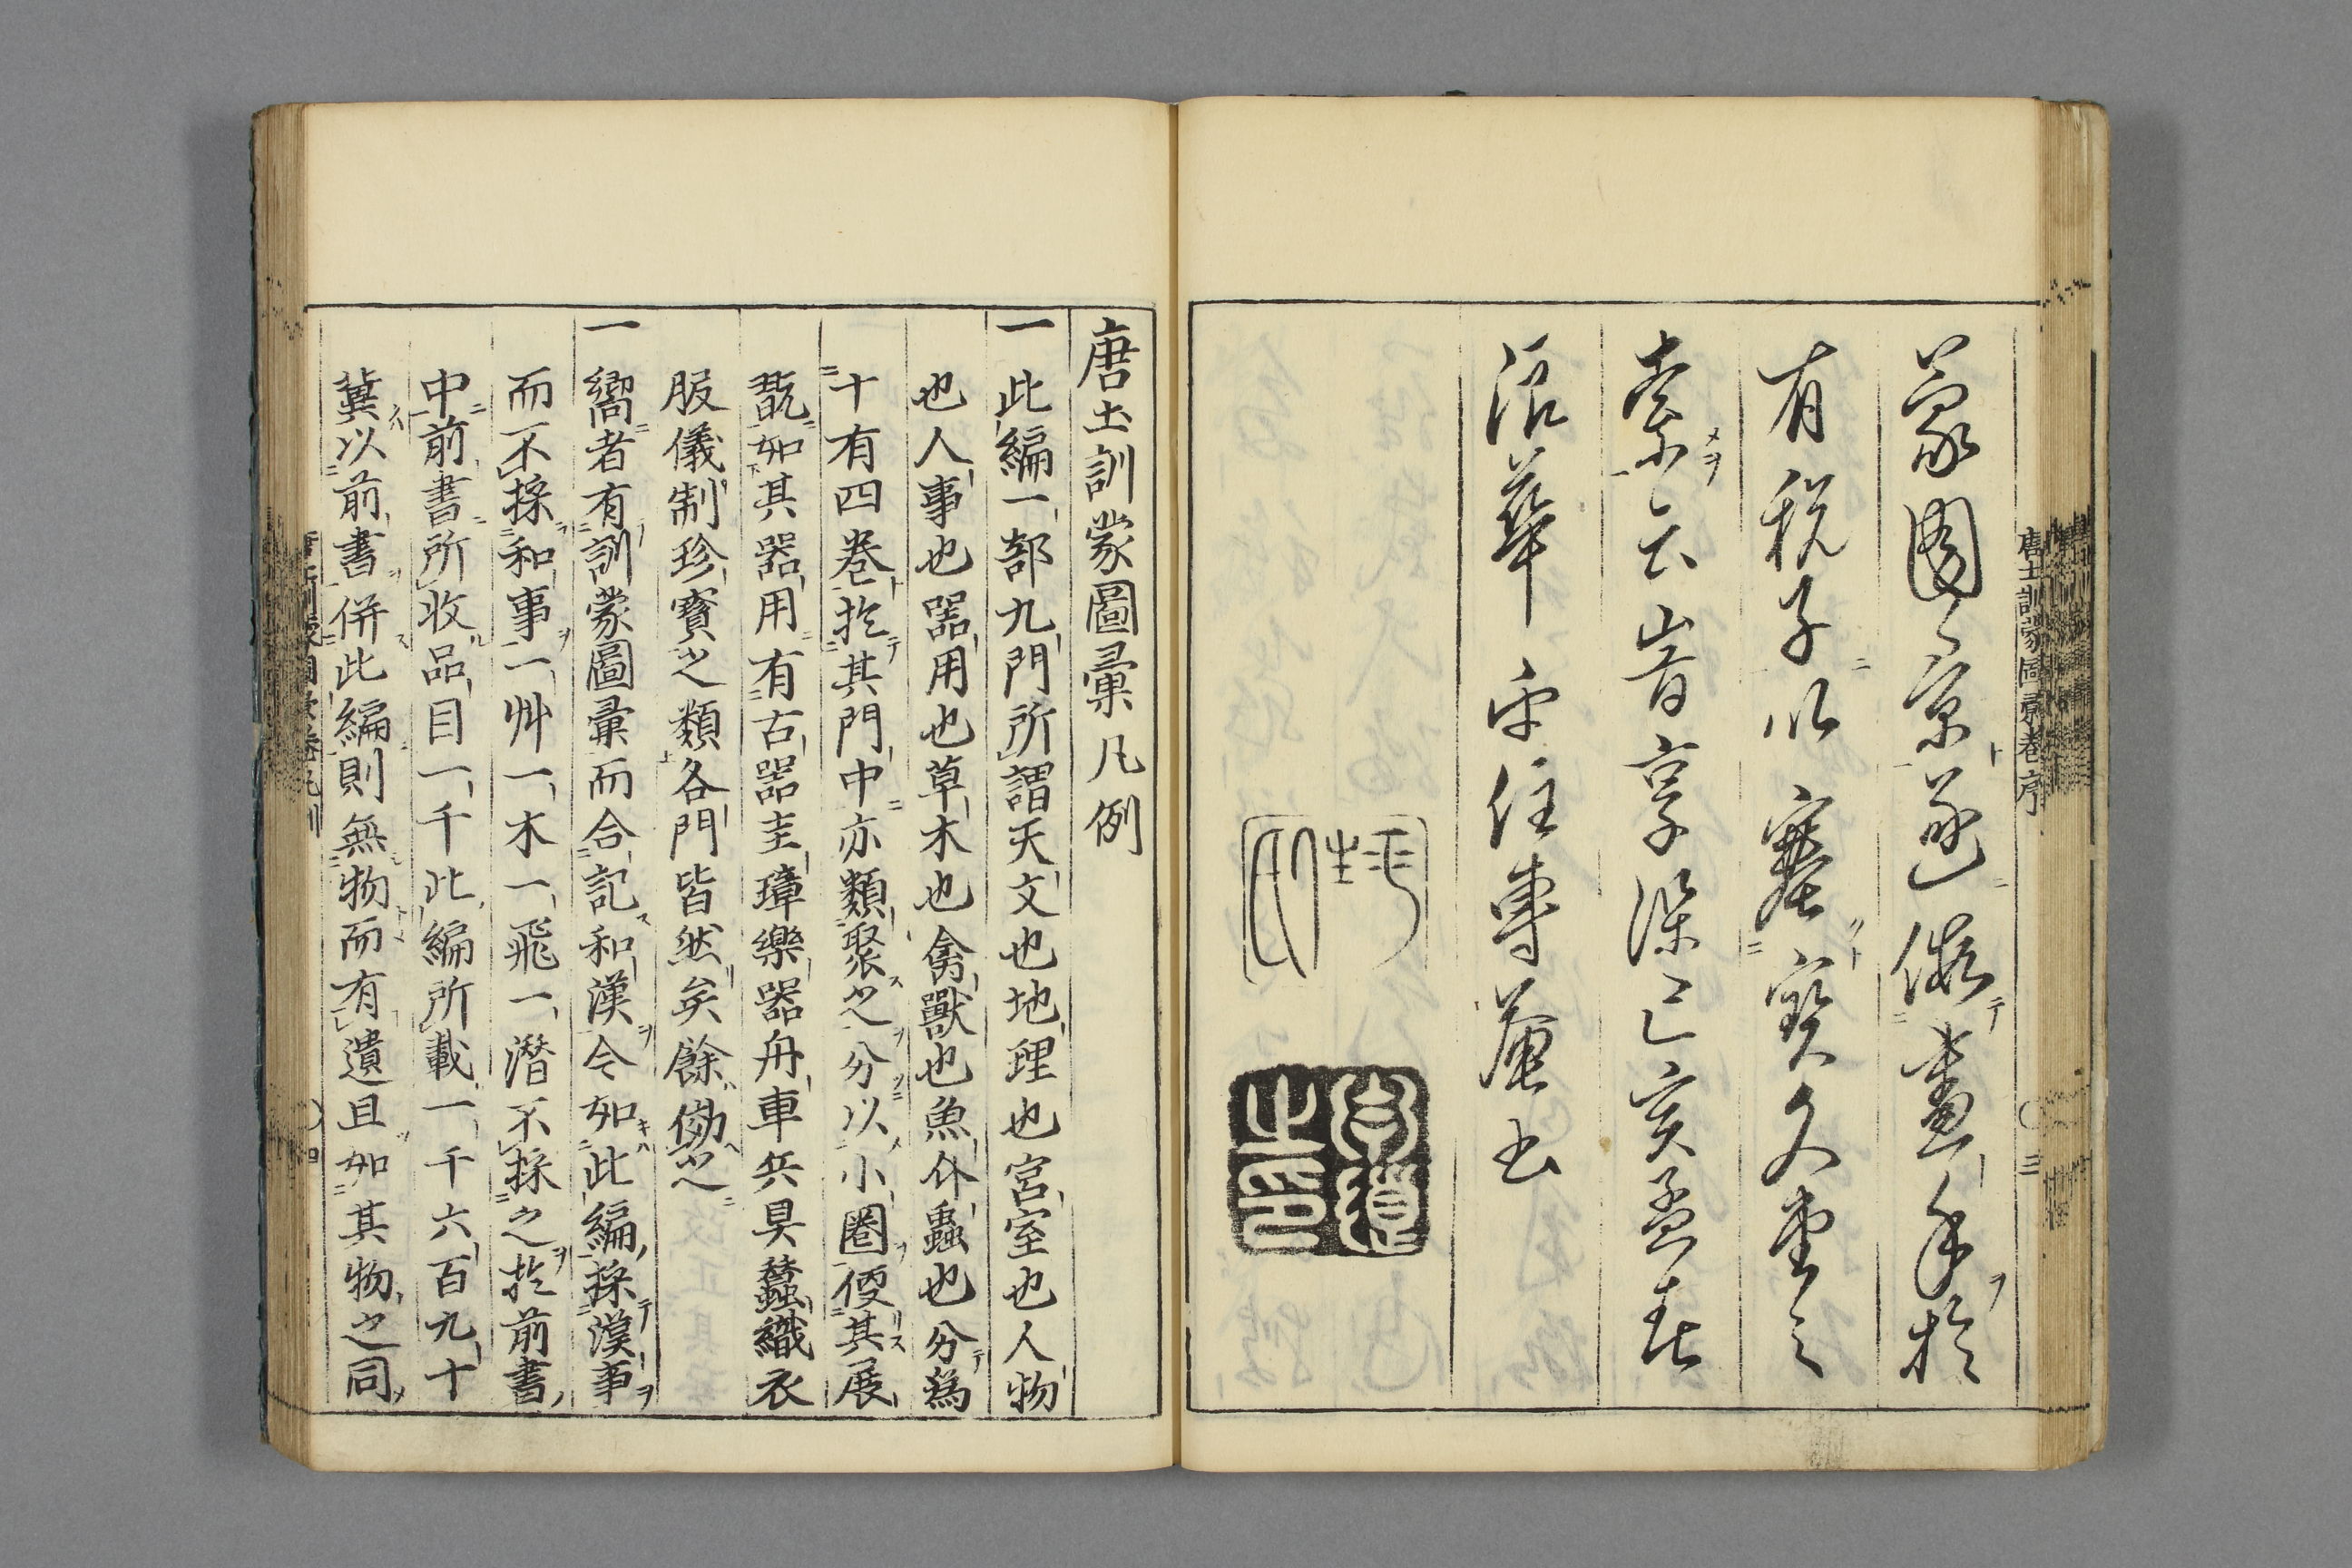 蒙圖彙遂倣畫手於
有税子以塞寳久堂之
索云岩享深己亥孟春
浪華平住專菴書
唐土訓蒙圖彙卷序
三
唐土訓蒙圖彙凡例
一此編一部九門所謂天文也地理也宮室也人物
也人事也器用也草木也禽獸也魚介蟲也分爲
十有四卷於其門中亦類聚之分以小圈便其展
翫如其器用有古器圭璋樂器舟車兵具蠶織衣
服儀制珍寶之類各門皆然矣餘傚之
一嚮者有訓蒙圖彙而合記和漢今如此編採漢事
而不採和事一艸一木一飛一潛不採之於前書
中前書所收品目一千此編所載一千六百九十
冀以前書併此編則無物而有遺且如其物之同